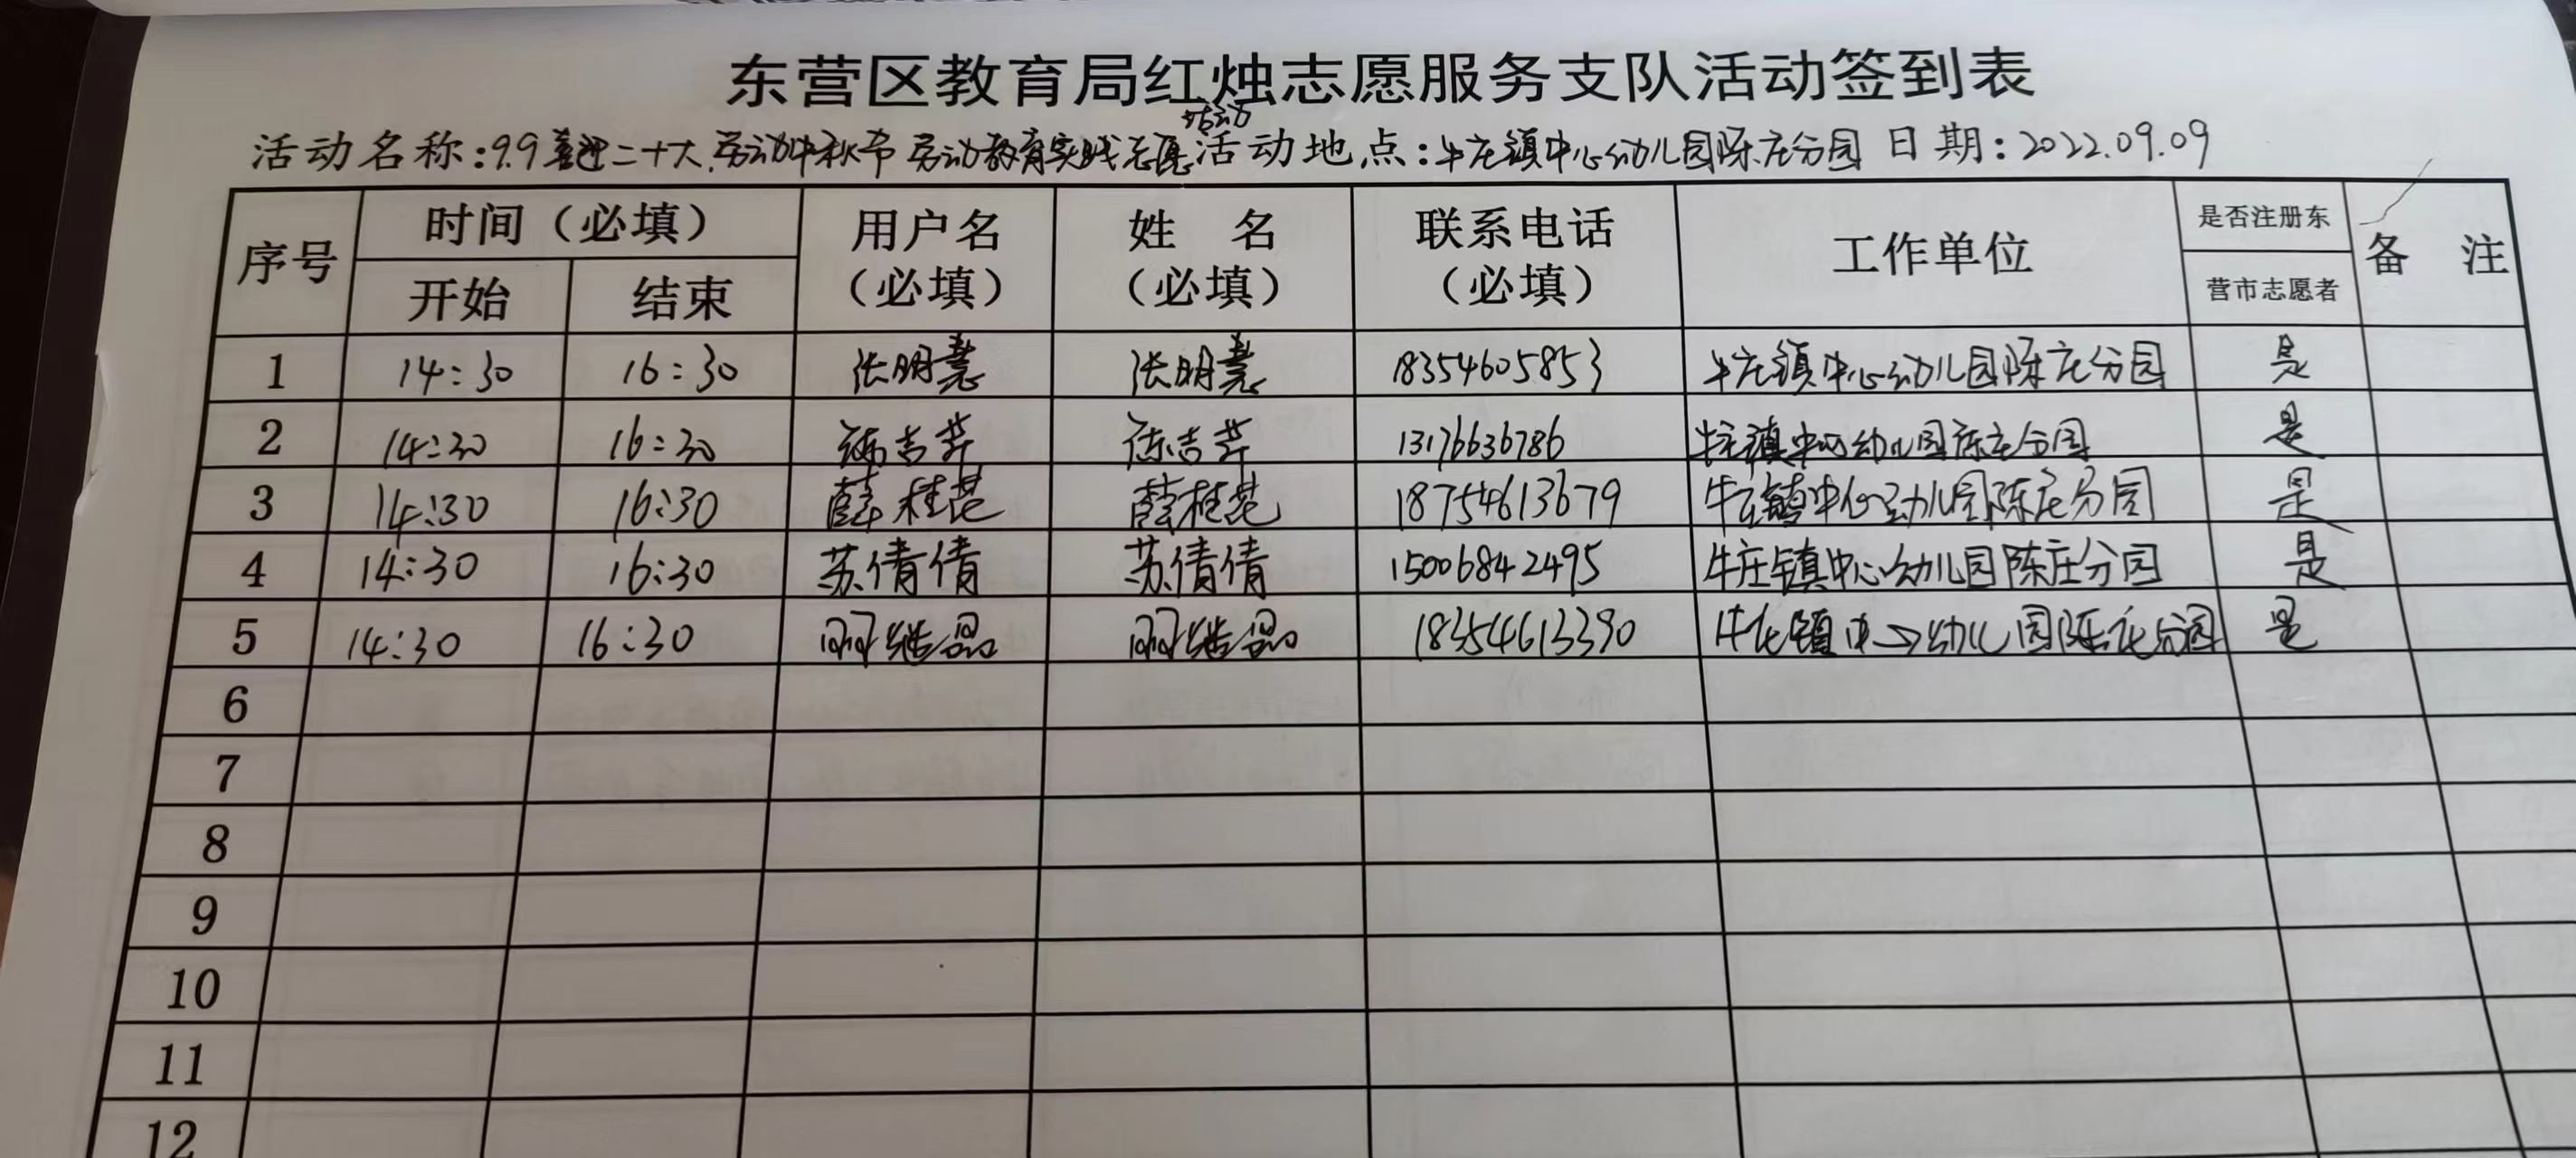 东营区教育局红烛志愿服务支队活动签到表
活动名称：9.9喜迎二十大，劳动中秋节 劳动教育实践志愿活动 活动地点：牛庄镇中心幼儿园陈庄分园 日期：2022.09.09
序号 时间（必填） 用户名（必填） 姓 名（必填） 联系电话（必填） 工作单位 是否注册东营市志愿者 备 注
开始 结束
1 14:30 16:30 张明慧 张明慧 18354605853 牛庄镇中心幼儿园陈庄分园 是
2 14:30 16:30 陈吉芹 陈吉芹 13176636786 牛庄镇中心幼儿园陈庄分园 是
3 14:30 16:30 薛桂花 薛桂花 18754613679 牛庄镇中心幼儿园陈庄分园 是
4 14:30 16:30 苏倩倩 苏倩倩 15006842495 牛庄镇中心幼儿园陈庄分园 是
5 14:30 16:30 18354613390 牛庄镇中心幼儿园陈庄分园 是
6
7
8
9
10
11
12